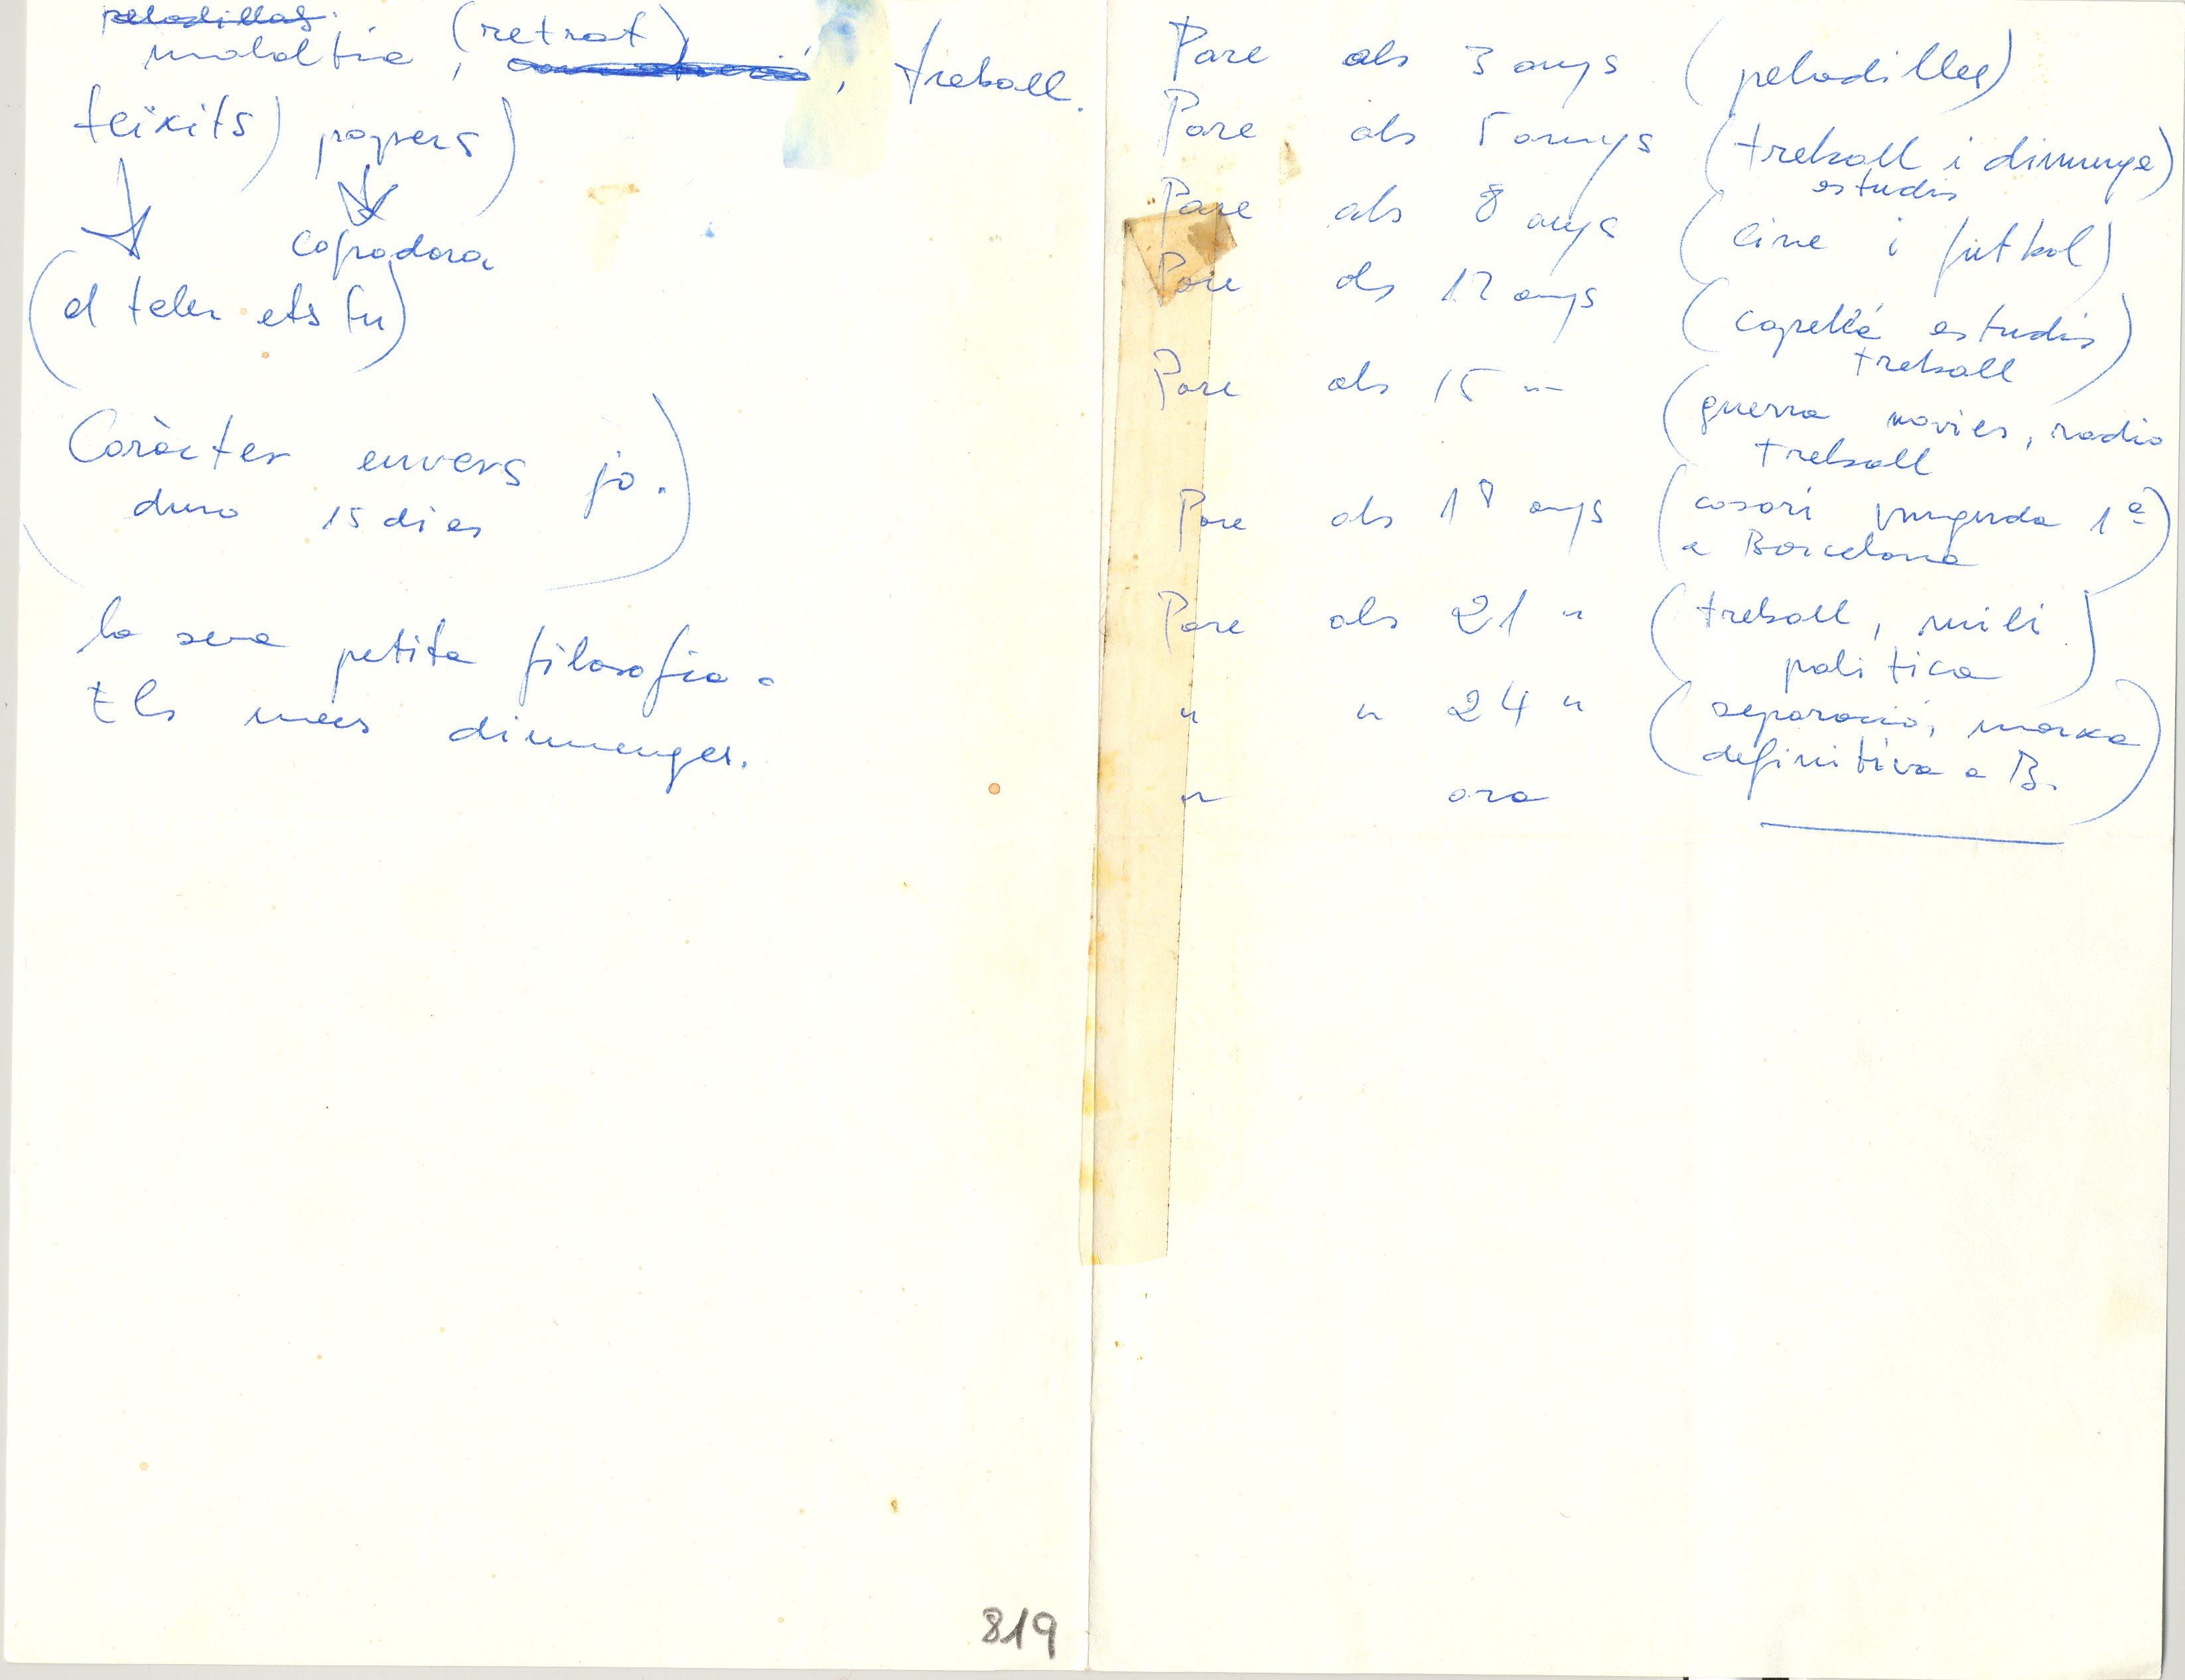 peladillas.
malaltia, (retrat), treball.
teixits) papers)
copiadora
(el teler ets tu)
Caràcter envers jo.
duro 15 dies
la seva petita filosofia.
Els meus diumenges.
819
Pare als 3 anys (peladilles)
Pare als 5 anys (treball i diumenge)
estudis
Pare als 8 anys (cine i fútbol)
Pare als 12 anys (capellà estudis)
treball
Pare als 15 " (guerra novies, radio
treball
Pare als 18 anys (casori vinguda 1ª)
a Barcelona
Pare als 21 " (treball, mili)
politica
" " 24 " (separació, marxa
definitiva a B.)
" ara